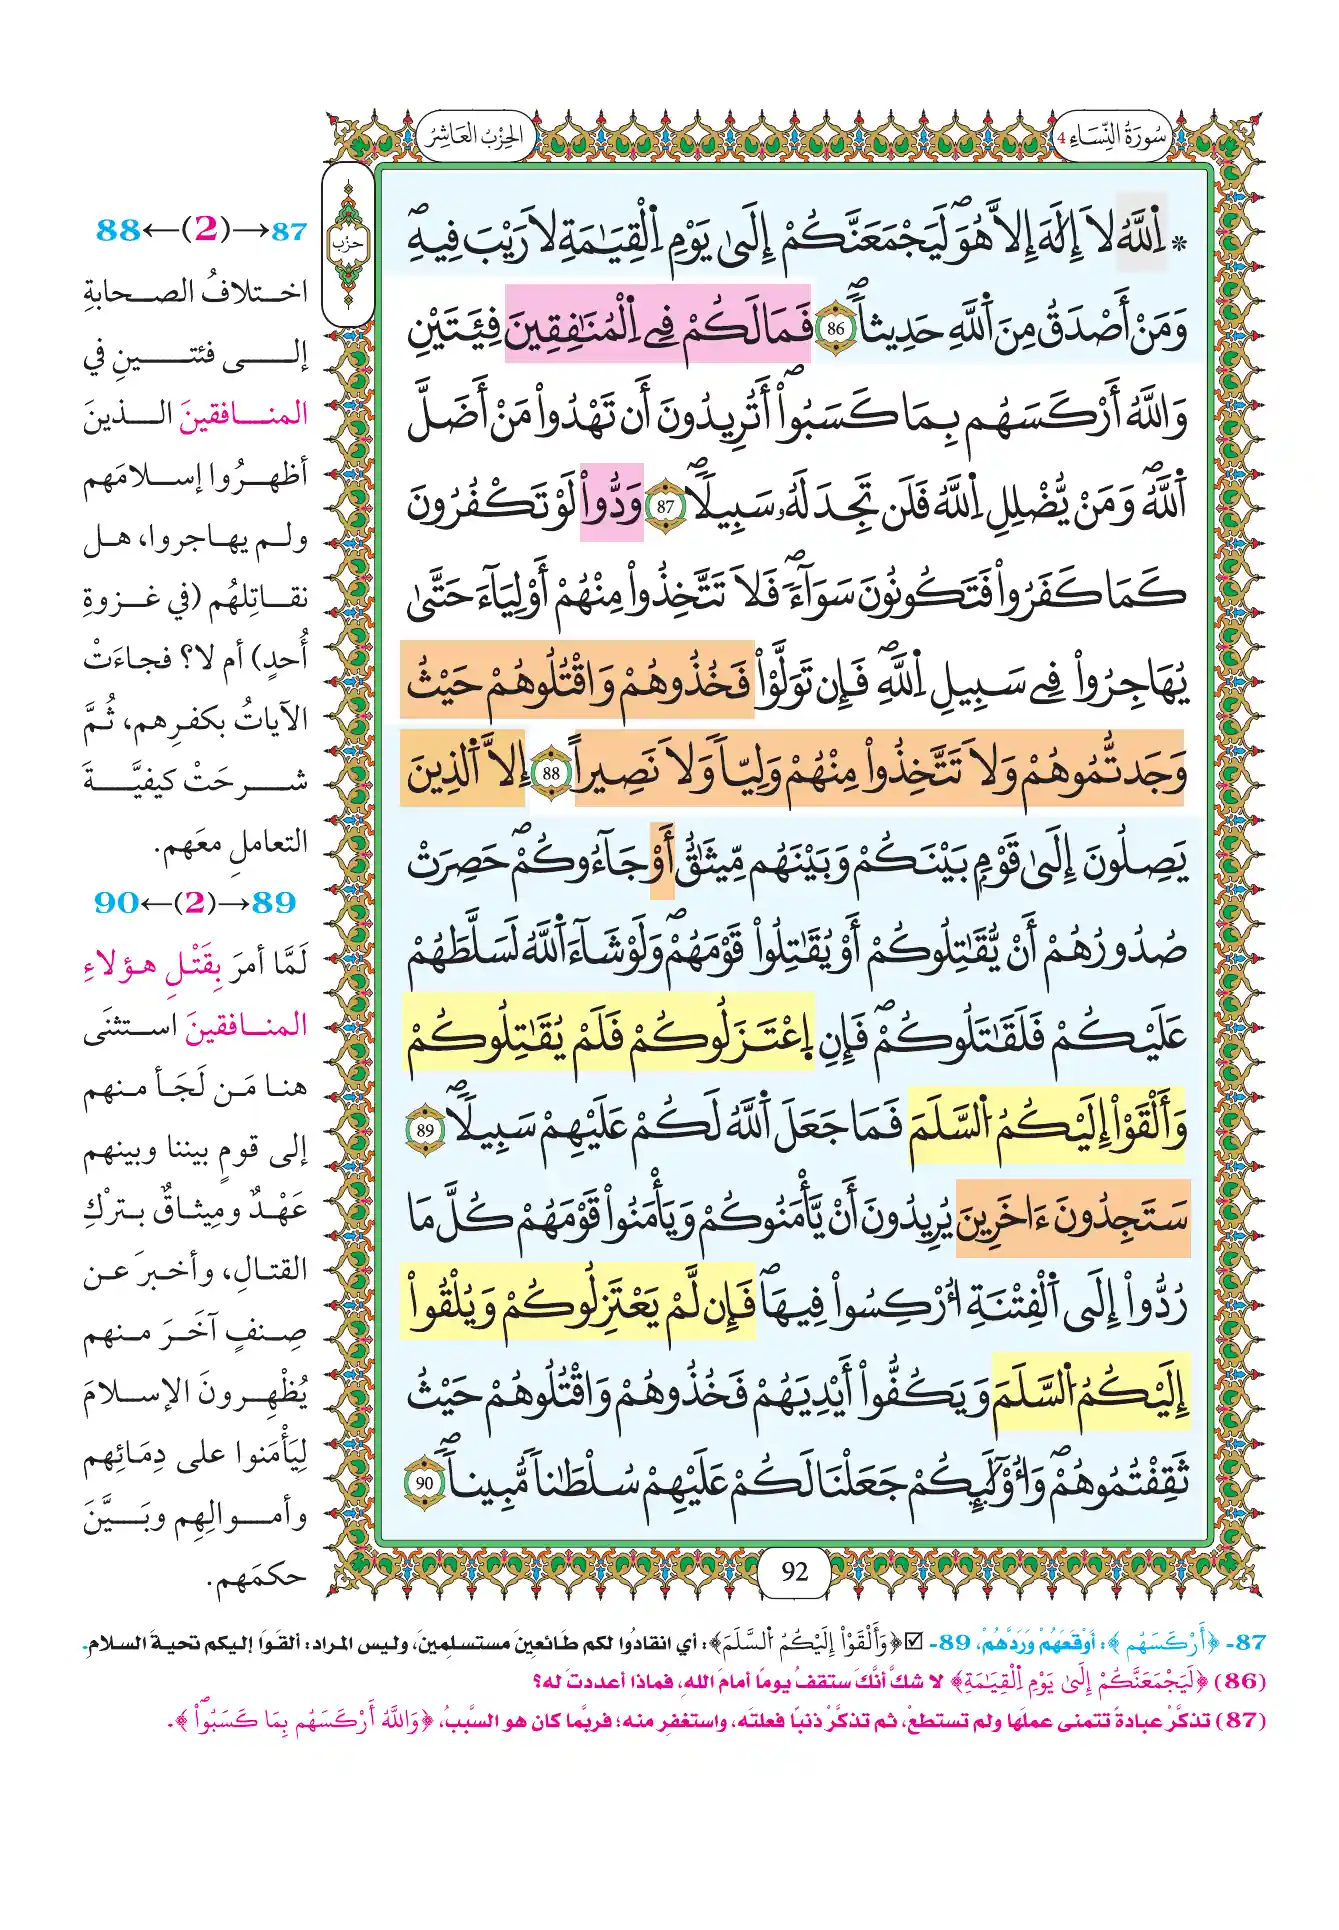 سُورَةُ النِّسَاءِ 4
الحِزْبُ العَاشِرُ
حِزْب
* اِ۬للَّهُ لَا إِلَٰهَ إِلَّا هُوَ لَيَجْمَعَنَّكُمْ إِلَىٰ يَوْمِ اِ۬لْقِيَٰمَةِ لَا رَيْبَ فِيهِ
وَمَنْ أَصْدَقُ مِنَ اَ۬للَّهِ حَدِيثاً 86 فَمَا لَكُمْ فِے اِ۬لْمُنَٰفِقِينَ فِئَتَيْنِ
وَاللَّهُ أَرْكَسَهُم بِمَا كَسَبُواْ أَتُرِيدُونَ أَن تَهْدُواْ مَنْ أَضَلَّ
اَ۬للَّهُ وَمَنْ يُّضْلِلِ اِ۬للَّهُ فَلَن تَجِدَ لَهُۥ سَبِيلًا 87 وَدُّواْ لَوْ تَكْفُرُونَ
كَمَا كَفَرُواْ فَتَكُونُونَ سَوَآءً فَلَا تَتَّخِذُواْ مِنْهُمْ أَوْلِيَآءَ حَتَّىٰ
يُهَاجِرُواْ فِے سَبِيلِ اِ۬للَّهِ فَإِن تَوَلَّوْاْ فَخُذُوهُمْ وَاقْتُلُوهُمْ حَيْثُ
وَجَدتُّمُوهُمْ وَلَا تَتَّخِذُواْ مِنْهُمْ وَلِيّاً وَلَا نَصِيراً 88 اِلَّا اَ۬لذِينَ
يَصِلُونَ إِلَىٰ قَوْمٍ بَيْنَكُمْ وَبَيْنَهُم مِّيثَٰقٌ أَوْ جَآءُوكُمْ حَصِرَتْ
صُدُورُهُمْ أَنْ يُّقَٰتِلُوكُمْ أَوْ يُقَٰتِلُواْ قَوْمَهُمْ وَلَوْ شَآءَ اَ۬للَّهُ لَسَلَّطَهُمْ
عَلَيْكُمْ فَلَقَٰتَلُوكُمْ فَإِنِ اِ۪عْتَزَلُوكُمْ فَلَمْ يُقَٰتِلُوكُمْ
وَأَلْقَوْاْ إِلَيْكُمُ اُ۬لسَّلَمَ فَمَا جَعَلَ اَ۬للَّهُ لَكُمْ عَلَيْهِمْ سَبِيلًا 89
سَتَجِدُونَ ءَاخَرِينَ يُرِيدُونَ أَنْ يَّأْمَنُوكُمْ وَيَأْمَنُواْ قَوْمَهُمْ كُلَّ مَا
رُدُّواْ إِلَى اَ۬لْفِتْنَةِ أُرْكِسُواْ فِيهَا فَإِن لَّمْ يَعْتَزِلُوكُمْ وَيُلْقُواْ
إِلَيْكُمُ اُ۬لسَّلَمَ وَيَكُفُّواْ أَيْدِيَهُمْ فَخُذُوهُمْ وَاقْتُلُوهُمْ حَيْثُ
ثَقِفْتُمُوهُمْ وَأُوْلَٰٓئِكُمْ جَعَلْنَا لَكُمْ عَلَيْهِمْ سُلْطَٰناً مُّبِيناً 90
92
87→(2)←88
اختلافُ الصحابةِ
إلى فئتينِ في
المنافقينَ الذينَ
أظهرُوا إسلامَهم
ولم يهاجروا، هل
نقاتِلهُم (في غزوةِ
أُحدٍ) أم لا؟ فجاءَتْ
الآياتُ بكفرِهم، ثُمَّ
شرحَتْ كيفيَّةَ
التعاملِ معَهم.
89→(2)←90
لَمَّا أمرَ بِقَتْلِ هؤلاءِ
المنافقينَ استثنَى
هنا مَن لَجَأ منهم
إلى قومٍ بيننا وبينهم
عَهْدٌ ومِيثاقٌ بتركِ
القتالِ، وأخبرَ عن
صِنفٍ آخَرَ منهم
يُظْهِرونَ الإسلامَ
لِيَأْمَنوا على دِمَائِهم
وأموالِهِم وبَيَّنَ
حكمَهم.
87- ﴿أَرْكَسَهُم﴾: أوْقَعَهُمْ وَرَدَّهُمْ، 89- ☑ ﴿وَأَلْقَوْاْ إِلَيْكُمُ اُ۬لسَّلَمَ﴾: أي انقادُوا لكم طَائعينَ مستسلِمينَ، وليس المراد: ألقَوا إليكم تحيةَ السلام.
(86) ﴿لَيَجْمَعَنَّكُمْ إِلَىٰ يَوْمِ اِ۬لْقِيَٰمَةِ﴾ لا شكَّ أنَّكَ ستقفُ يومًا أمامَ اللهِ، فماذا أعددتَ له؟
(87) تذكَّرْ عبادةً تتمنى عملَها ولم تستطعْ، ثم تذكَّرْ ذنبًا فعلتَه، واستغفرِ منه؛ فربَّما كان هو السَّببُ، ﴿وَاللَّهُ أَرْكَسَهُم بِمَا كَسَبُواْ﴾.